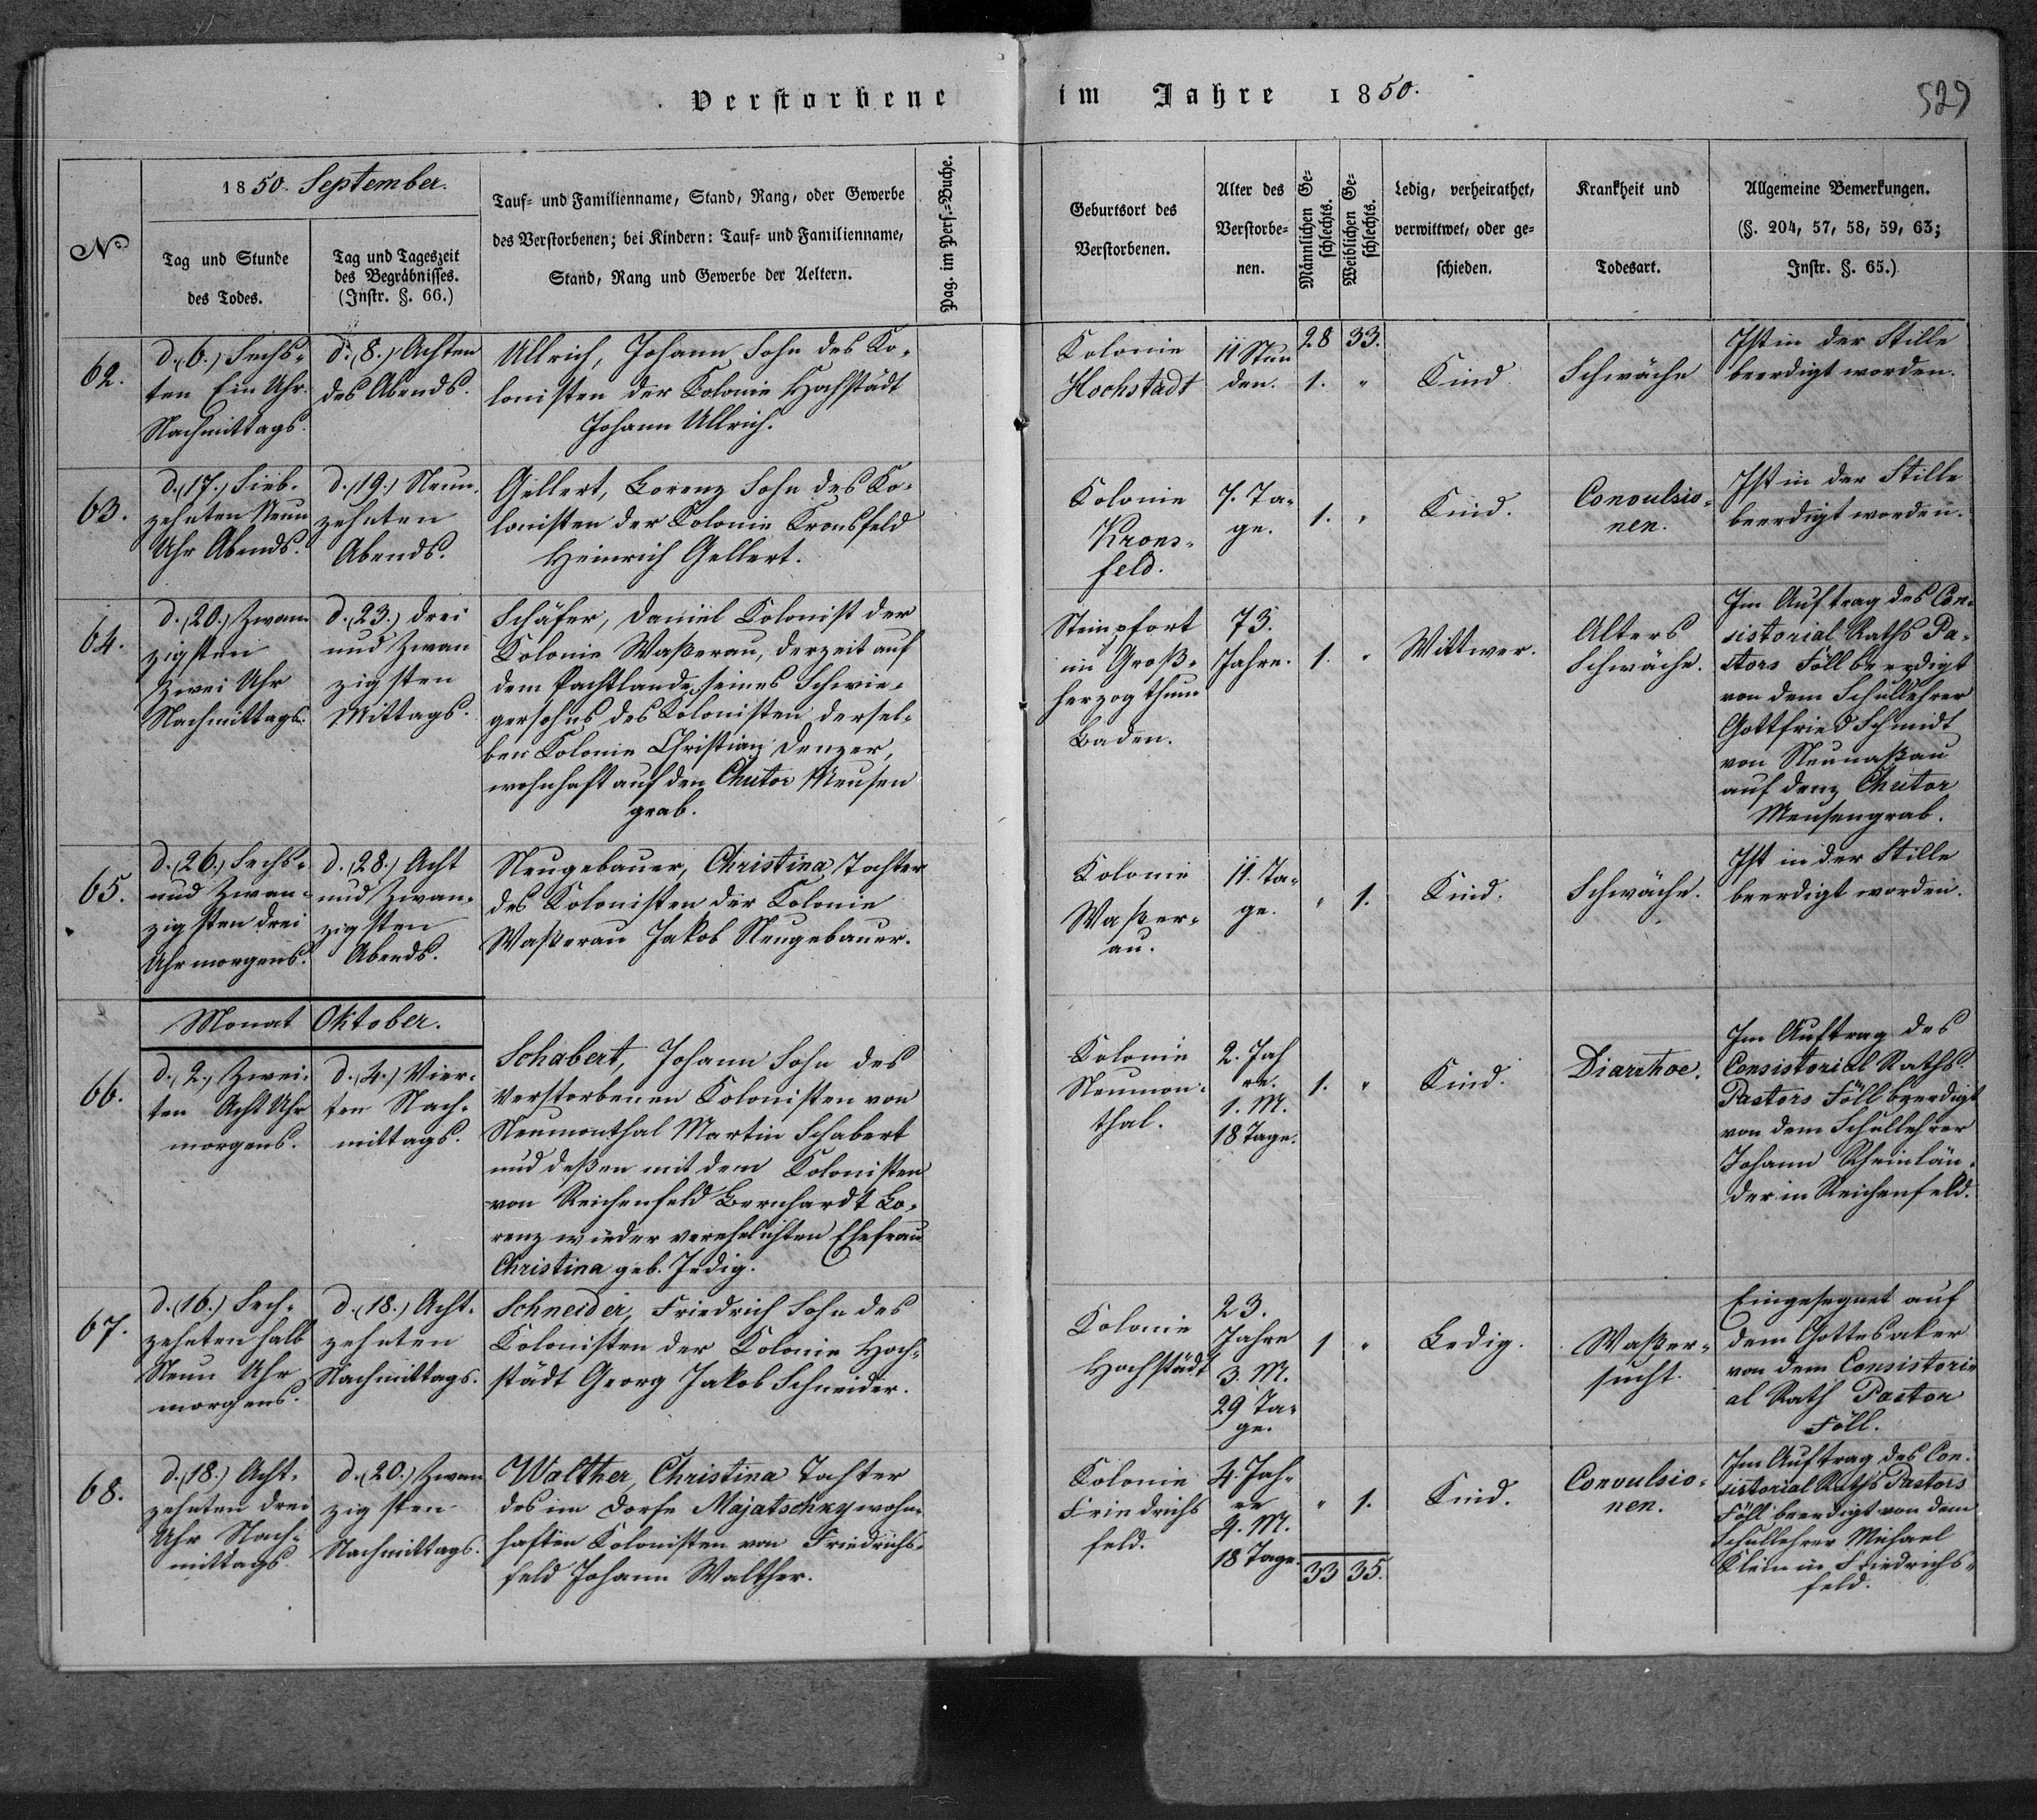 Verstorbene im Jahre 1850.
529
1850. September.
No
Tag und Stunde
des Todes.
Tag und Tageszeit
des Begräbnisses.
(Instr. §. 66.)
Tauf= und Familienname, Stand, Rang, oder Gewerbe
des Verstorbenen; bei Kindern: Tauf= und Familienname,
Stand, Rang und Gewerbe der Aeltern.
Pag. im Pers.=Buche.
Geburtsort des
Verstorbenen.
Alter des
Verstorbe=
nen.
Männlichen Ge=
schlechts.
Weiblichen Ge=
schlechts.
Ledig, verheirathet,
verwittwet, oder ge=
schieden.
Krankheit und
Todesart.
Allgemeine Bemerkungen.
(§. 204, 57, 58, 59, 63;
Instr. §. 65.)
62.
d. (6.) Sechs=
ten Ein Uhr
Nachmittags.
d. (8.) Achten
des Abends.
Ullrich, Johann, Sohn des Ko=
lonisten der Kolonie Hochstädt
Johann Ullrich.
Kolonie
Hochstadt
11 Stun
den.
28
1.
33.
"
Kind
Schwäche
Ist in der Stille
beerdigt worden.
63.
d. (17.) Sieb=
zehnten Neun
Uhr Abends.
d. (19.) Neun=
zehnten
Abends.
Gellert, Lorenz Sohn des Ko=
lonisten der Kolonie Kronsfeld
Heinrich Gellert.
Kolonie
Krons=
feld.
7. Ta=
ge.
1.
"
Kind.
Convulsio=
nen.
Ist in der Stille
beerdigt worden.
64.
d. (20.) Zwan
zigsten
Zwei Uhr
Nachmittags.
d. (23.) drei
und Zwan
zigsten
Mittags.
Schäfer, Daniel Kolonist der
Kolonie Waßerau, derzeit auf
dem Pachtlande seines Schwie=
gersohns des Kolonisten dersel=
ben Kolonie Christian Denzer,
wohnhaft auf den Chutor Meusen
grab.
Steinsfort
im Groß=
herzogthum
Baden.
73.
Jahre.
1.
"
Wittwer.
Alters
Schwäche.
Im Auftrag des Con=
sistorial Raths Pa=
stors Föll beerdigt
von dem Schullehrer
Gottfried Schmidt
von Neunaßau
auf dem Chutor
Meusengrab.
65.
d. (26.) Sechs=
und Zwan=
zigsten drei
Uhr morgens.
d. (28.) Acht
und Zwan=
zigsten
Abends.
Neugebauer, Christina, Tochter
des Kolonisten der Kolonie
Waßerau Jakob Neugebauer.
Kolonie
Waßer=
au.
11. Ta=
ge.
"
1.
Kind.
Schwäche.
Ist in der Stille
beerdigt worden.
Monat Oktober.
66.
d. (2.) Zwei=
ten Acht Uhr
morgens.
d. (4.) Vier=
ten Nach=
mittags.
Schabert, Johann Sohn des
verstorbenen Kolonisten von
Neumonthal Martin Schabert
und deßen mit dem Kolonisten
von Reichenfeld Bernhardt Lo=
renz wieder verehelichten Ehefrau
Christina geb. Jedig.
Kolonie
Neumon=
thal.
2. Jah
re.
1. M.
18 Tage.
1.
"
Kind.
Diarrhoe.
Im Auftrag des
Consistorial Raths
Pastors Föll beerdigt
von dem Schullehrer
Johann Rheinlän=
der in Reichenfeld.
67.
d. (16.) Sech=
zehnten halb
Neun Uhr
morgens.
d. (18.) Acht=
zehnten
Nachmittags.
Schneider, Friedrich Sohn des
Kolonisten der Kolonie Hoch=
städt Georg Jakob Schneider.
Kolonie
Hochstädt
23.
Jahre
3. M.
29 Ta=
ge.
1
"
Ledig.
Waßer=
sucht.
Eingesegnet auf
dem Gottesaker
von dem Consistori=
al Rath Pastor
Föll.
68.
d. (18.) Acht=
zehnten drei
Uhr Nach=
mittags.
d. (20.) Zwan
zigsten
Nachmittags.
Walther, Christina Tochter
des im Dorfe Majatschky wohn=
haften Kolonisten von Friedrichs=
feld Johann Walther.
Kolonie
Friedrichs
feld.
4. Jah=
re
4. M.
18 Tage.
"
1.
Kind.
Convulsio=
nen.
Im Auftrag des Con=
sistorial Raths Pastors
Föll beerdigt von dem
Schullehrer Michael
Klein in Friedrichs=
feld.
33
35.